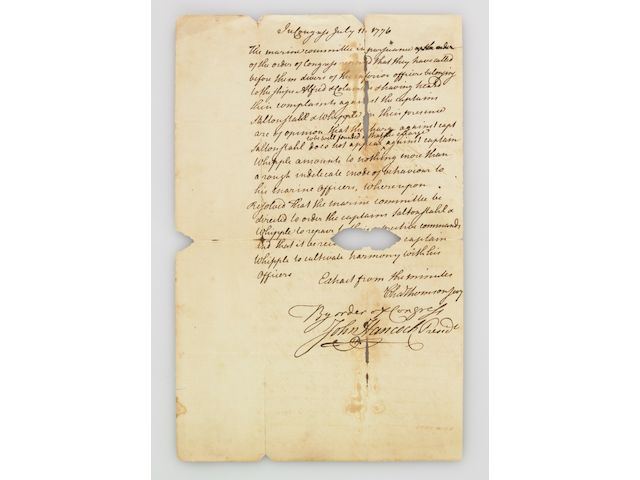 In Congress July 11. 1776
The marine committee in persuance of the order
of the order of Congress reported that they have called
before them divers of the inferior officers belonging
to the ships Alfred & Columbus & having heard
their complaints against the captains
Saltonstahl & Whipple in their presence
are of opinion that the charge against capt
Saltonstahl does not appear
well founded & that the charge
against captain
Whipple amounts to nothing more than
a rough indelicate mode of behaviour to
his marine Officers, Whereupon
Resolved that the marine committee be
directed to order the captains Saltonstahl &
Whipple to repair to their respective commands
and that it be captain
Whipple to cultivate harmony with his
Officers
Extract from the minutes
Cha Thomson Secy
By order of Congress
John Hancock Presidt